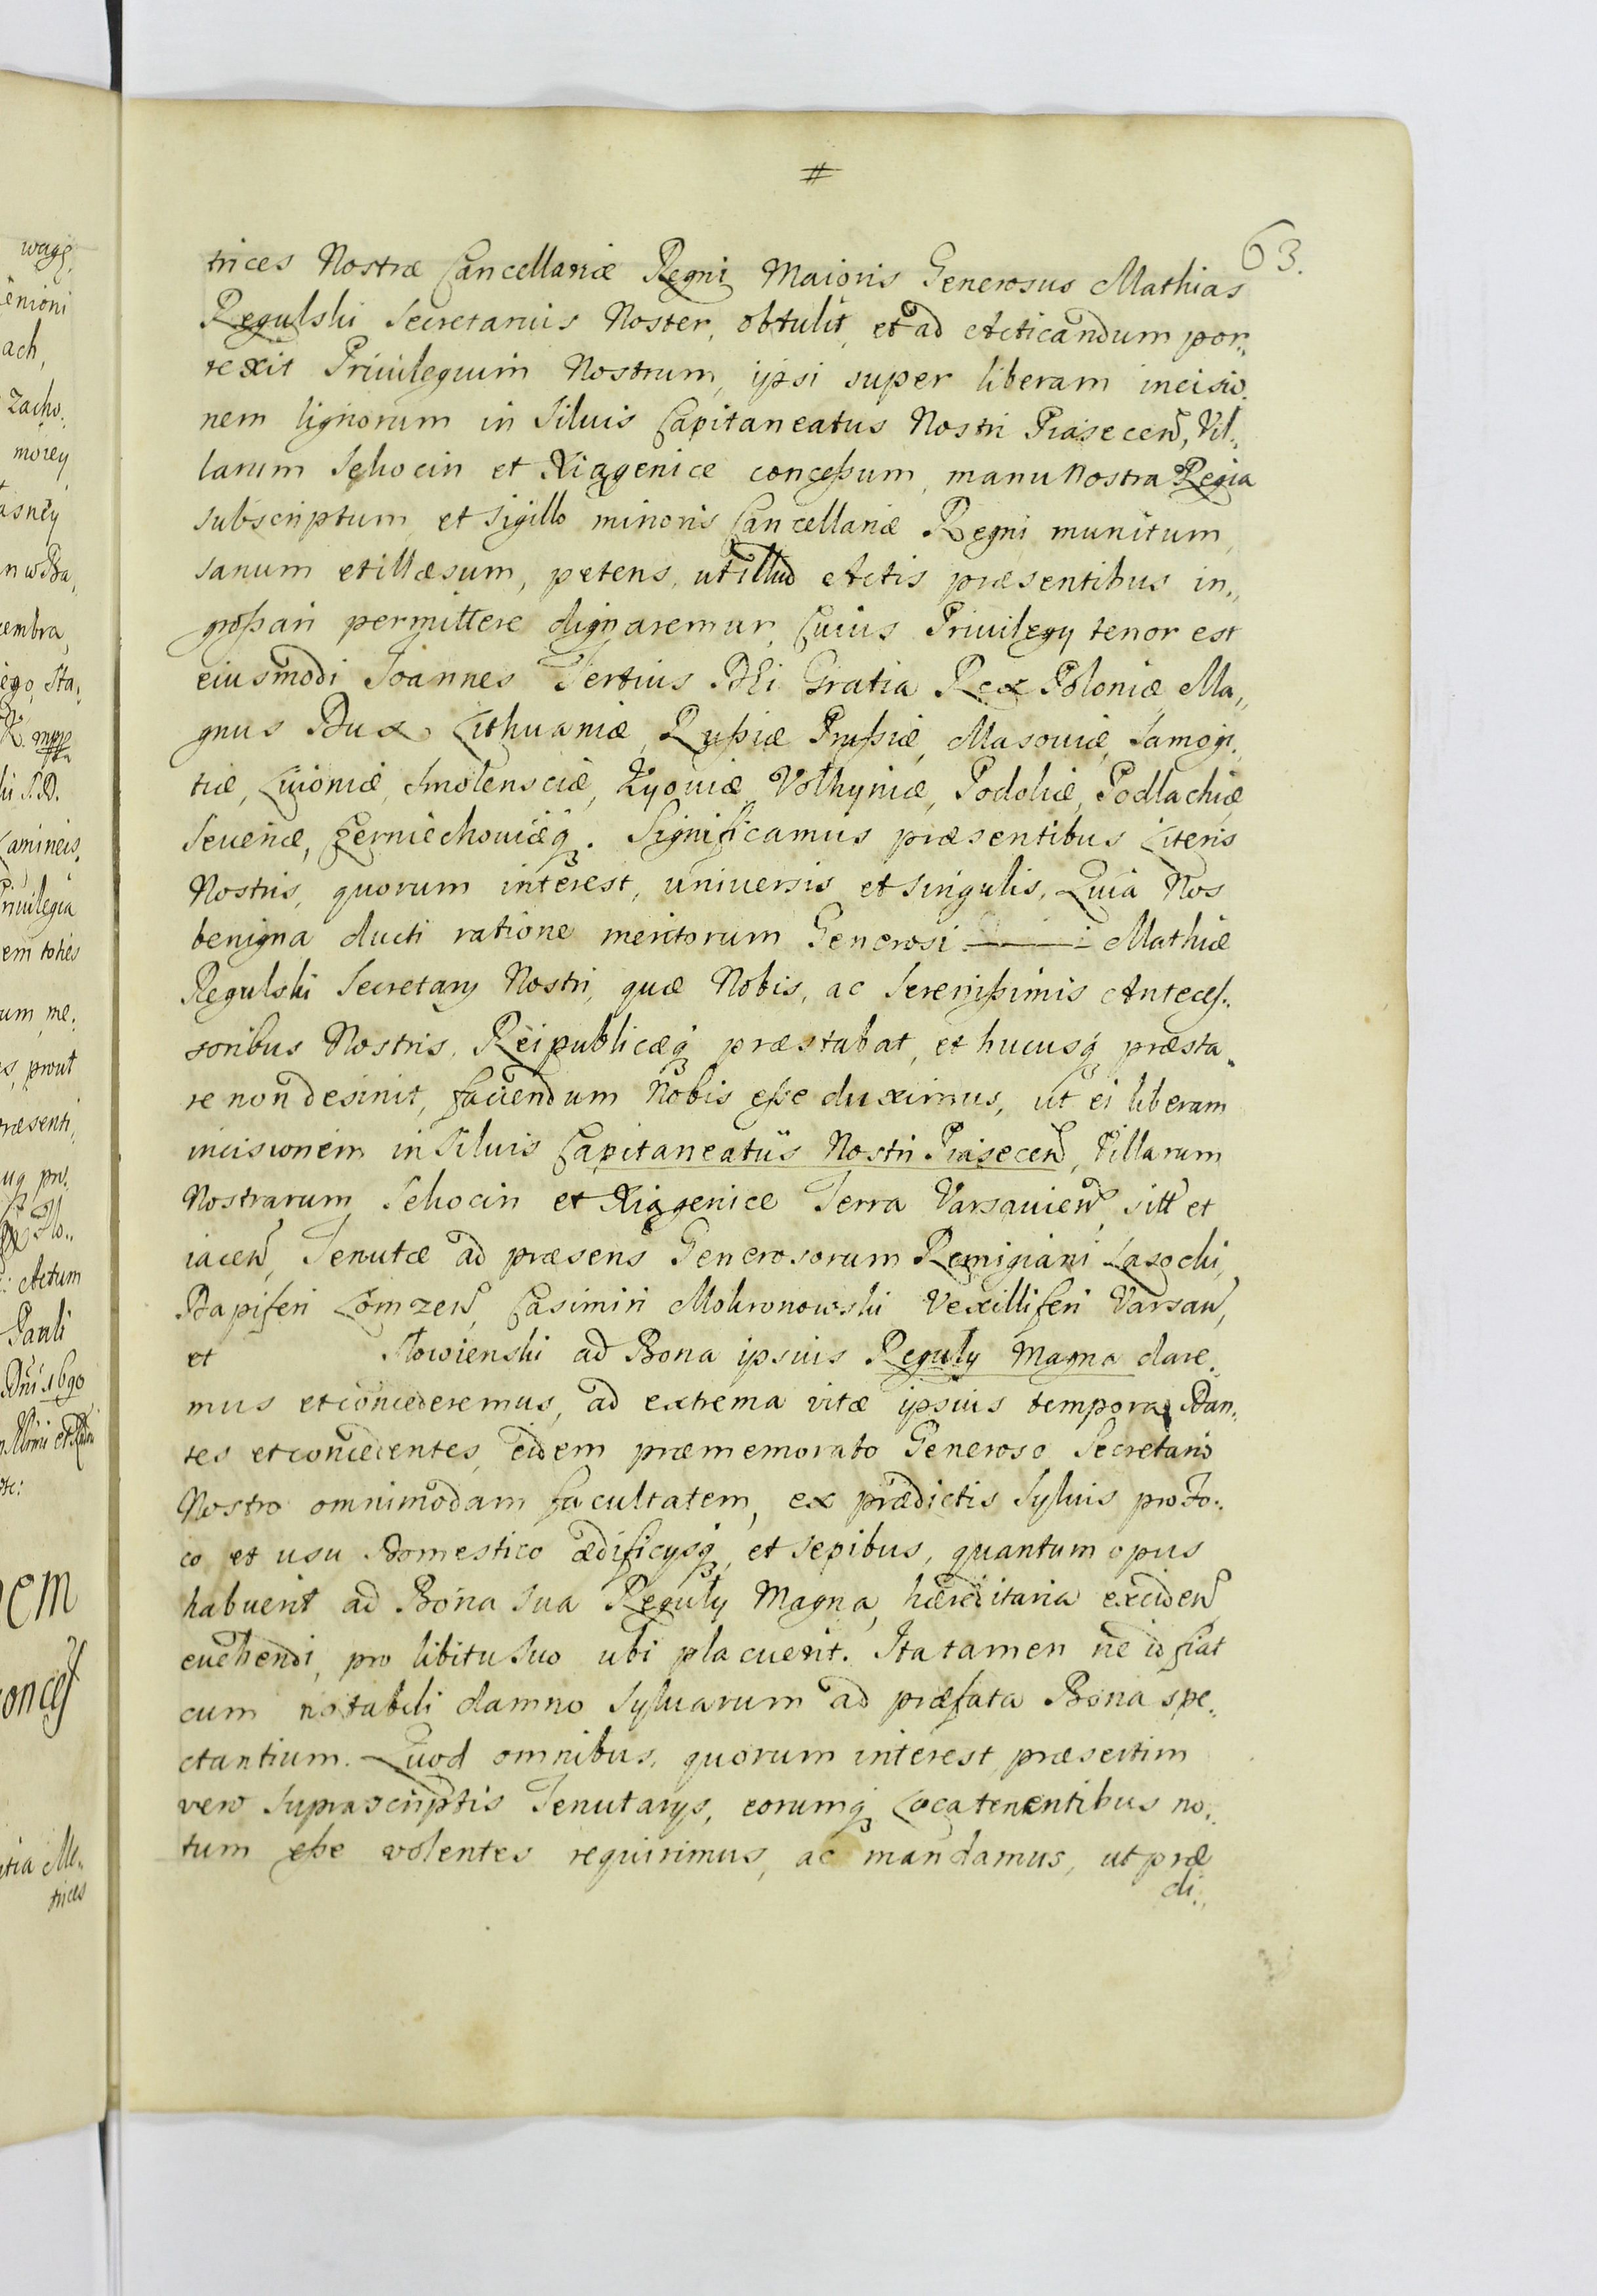 #
63.
trices Nostræ Cancellariæ Regni Maioris Generosus Mathias
Regulski Secretarius Noster, obtulit, et ad Acticandum por„
rexit Priuilegium Nostrum, ipsi super liberam incisio„
nem lignorum in Siluis Capitaneatus Nostri Piasecen̄, Vil„
larum Sękocin et Xiązenice conceßum, manu Nostra Regia
subscriptum, et sigillo minoris Cancellariæ Regni munitum,
sanum et illæsum, petens, ut illud Actis præsentibus in„
großari permittere dignaremur, Cuius Priuilegij tenor est
eiusmodi Joannes Tertius DEi Gratia Rex Poloniæ, Ma„
gnus Dux Lithuaniæ, Rußiæ Prußiæ, Masouiæ, Samogi„
tiæ, Liuoniæ, Smolensciæ, Kyouiæ, Volhyniæ, Podoliæ, Podlachiæ
Seueriæ, Czerniechouiæq́. Significamus præsentibus Literis
Nostris, quorum interest, uniuersis et singulis, Quia Nos
benigna ducti ratione meritorum Generosi Mathiæ
Regulski Secretarij Nostri, quæ Nobis, ac Serenißimis Anteceſ„
soribus Nostris, Reipublicæq́ præstabat, et hucusq́ præsta„
re non desinit, faciendum Nobis eße duximus, ut ei liberam
incisionem in Siluis Capitaneatus Nostri Piasecen̄, Villarum
Nostrarum Sękocin et Xiązenice Terra Varsauien̄ sitt̄ et
iacen̄, Tenutæ ad præsens Generosorum Remigiani Lasocki,
Dapiferi Łomzen̄, Casimiri Mokronowski Vexilliferi Varsau̅,
et Słowienski ad Bona ipsius Reguly Magna dare„
mus et concederemus, ad extrema vitæ ipsius tempora, Dan„
tes et concedentes, eidem præmemorato Generoso Secretario
Nostro omnimodam facultatem, ex prædictis Syluis pro Fo„
co et usu Domestico ædificysq́, et sepibus, quantum opus
habuerit ad Bona sua Reguly Magna, hæreditaria exciden̄
euehendi, pro libitu suo ubi placuerit. Ita tamen ne id fiat
cum notabili damno Syluarum ad præfata Bona spe„
ctantium. Quod omnibus, quorum interest, præsertim
vero suprascriptis Tenutarijs, eorumq́ Locatenentibus no„
tum eße volentes requirimus, ac mandamus, ut præ
di„